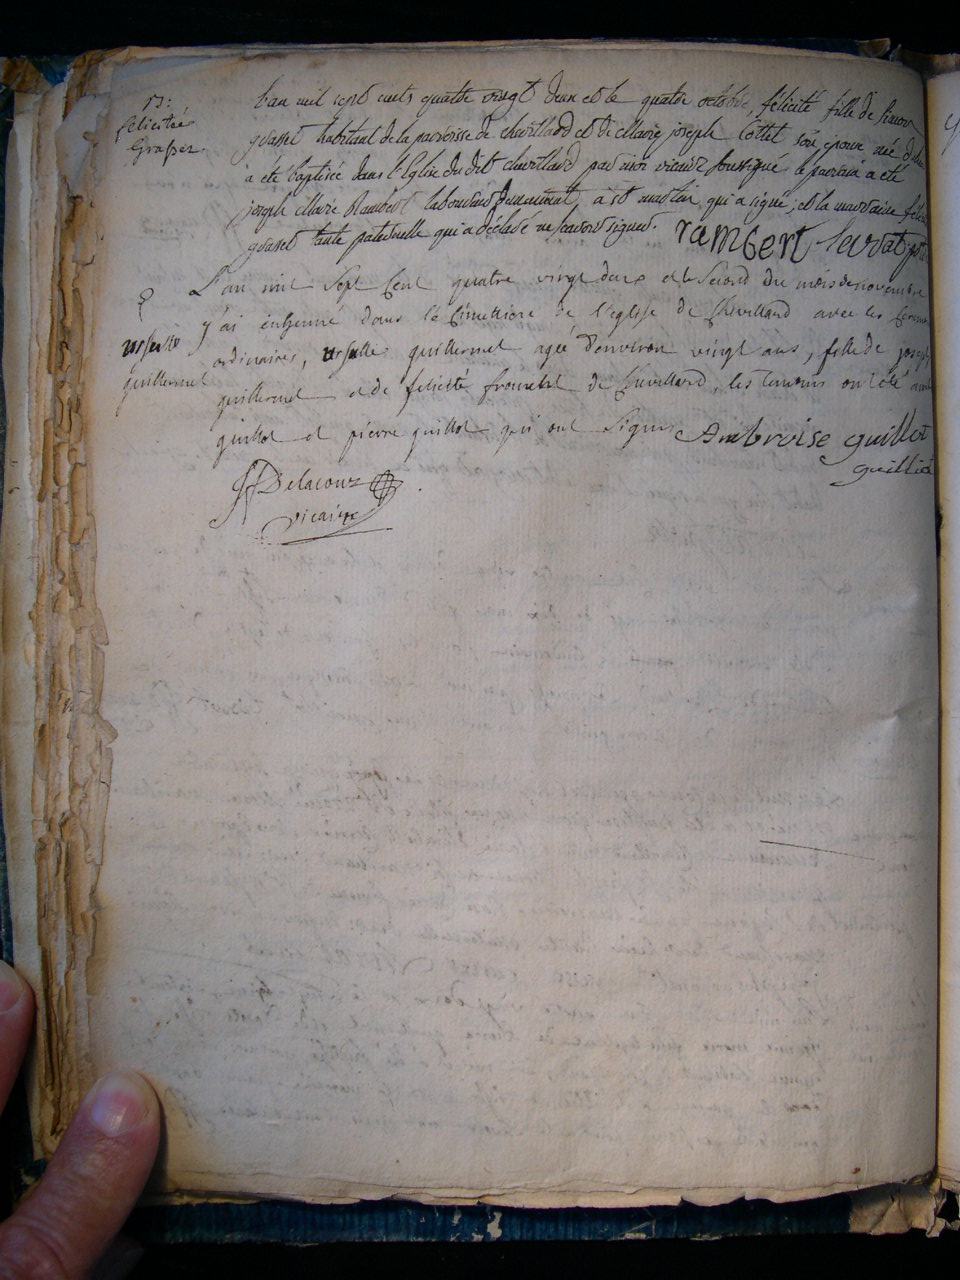 13:
felicitée
Grasset.
l'an mil sept cents quatre vingt deux et le quatre octobre, félicité fille de Simon
grasset habitant de la paroisse de chevillard et de Marie joseph Cottet son epouse née d'hier
a été baptisée dans l'Eglise du dit chevillard par moi vicaire soussigné le parrain a été
joseph Marie Rambert laboureur demeurant, a st martin, qui a signé, et la marraine félici
grasset tante paternelle qui a déclaré ne scavoir signer. rambert
L'an mil Sept Cent quatre vingt deux et le Second du mois de novembre
j'ai enterré dans le Cimetiere de l'eglise de Chevillard avec les Cerem
ursulle
ordinaires, ursulle guillermet agée d'environ vingt ans, fille de joseph
guillermet
guillermet et de felicité de Chevillard, les temoins ont été
guillot et pierre guillot qui ont Signés Ambroise guillot
guilliot
Delacour
vicaire